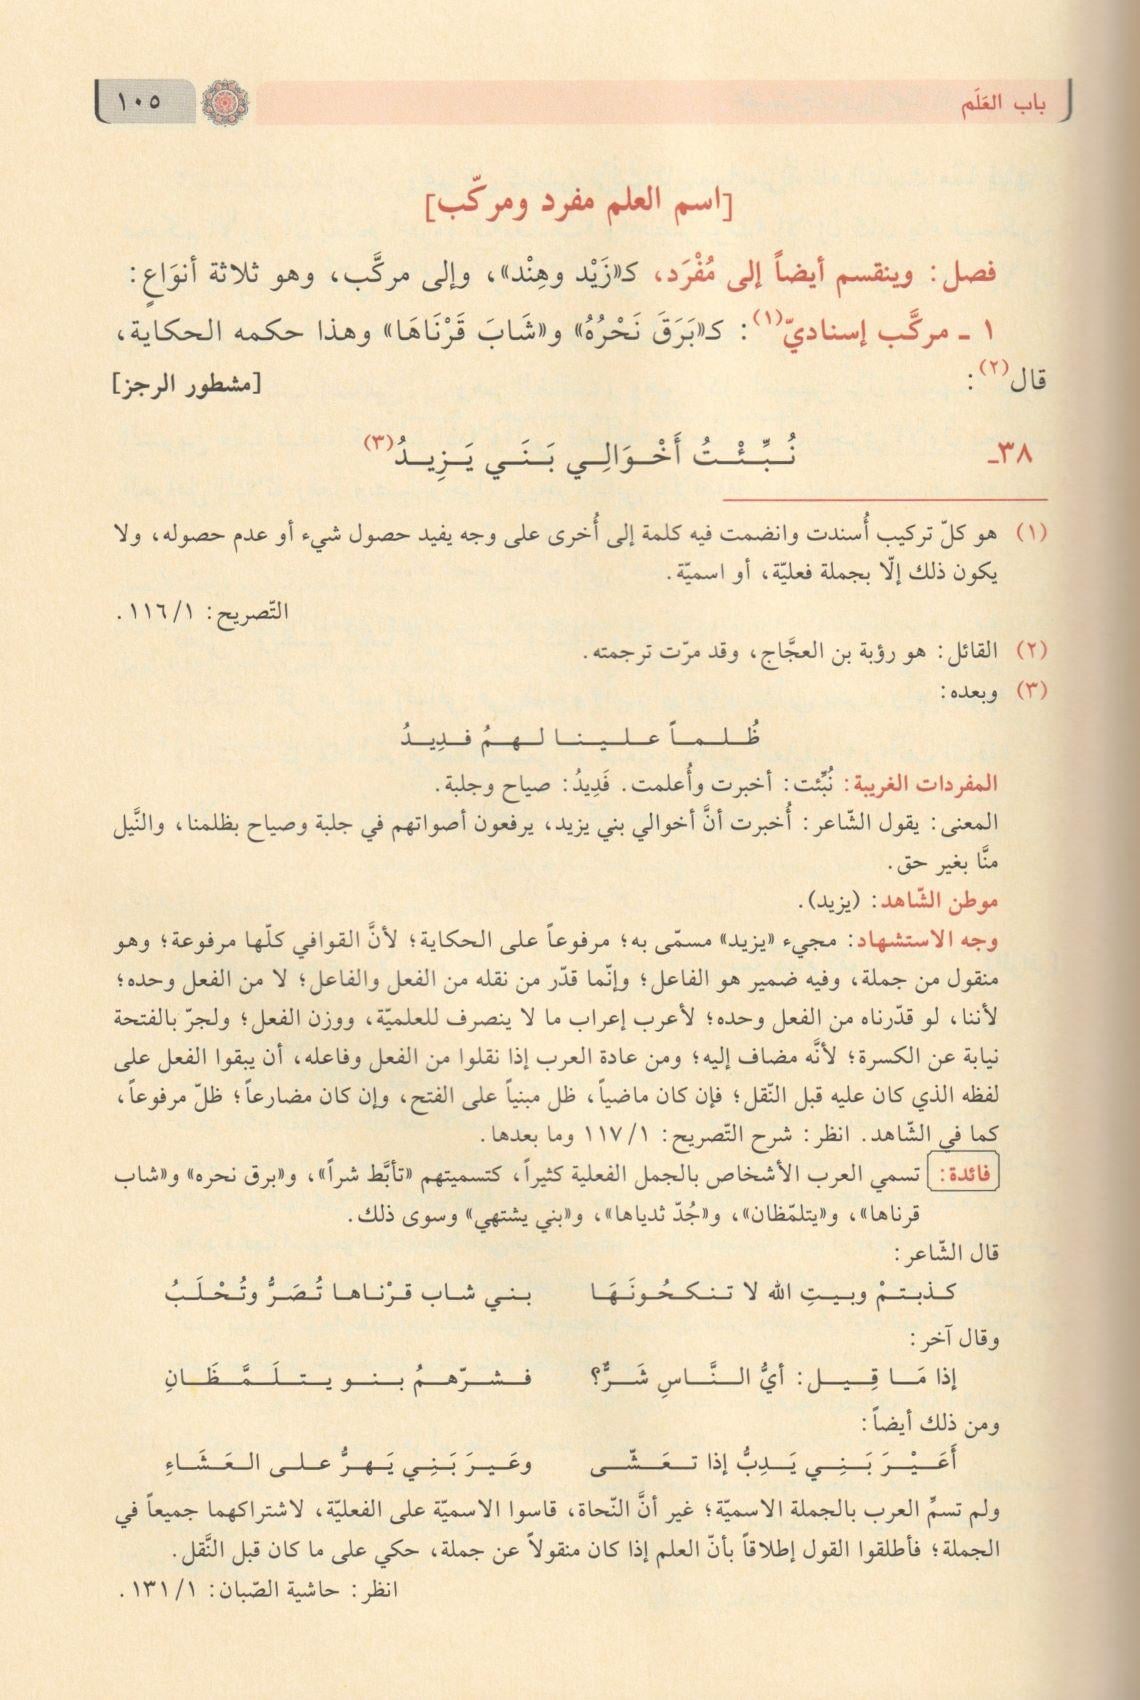 باب العَلَم
١٠٥
[اسم العلم مفرد ومركّب]
فصل: وينقسم أيضاً إلى مُفْرَد، كـ«زَيْد وهِنْد»، وإلى مركَّب، وهو ثلاثة أنوَاعٍ:
١ ـ مركَّب إسناديّ(١): كـ«بَرَقَ نَحْرُهُ» و«شَابَ قَرْنَاهَا» وهذا حكمه الحكاية،
قال(٢): [مشطور الرجز]
٣٨ـ نُبِّئْتُ أَخْوَالِي بَنَي يَزِيدُ(٣)
(١) هو كلّ تركيب أُسندت وانضمت فيه كلمة إلى أُخرى على وجه يفيد حصول شيء أو عدم حصوله، ولا
يكون ذلك إلّا بجملة فعليّة، أو اسميّة.
التّصريح: ١/ ١١٦.
(٢) القائل: هو رؤبة بن العجَّاج، وقد مرّت ترجمته.
(٣) وبعده:
ظُلماً علينا لهمُ فدِيدُ
المفردات الغريبة: نُبِّئت: أخبرت وأُعلمت. فَدِيدُ: صياح وجلبة.
المعنى: يقول الشّاعر: أُخبرت أنَّ أخوالي بني يزيد، يرفعون أصواتهم في جلبة وصياح بظلمنا، والنَّيل
منَّا بغير حق.
موطن الشّاهد: (يزيد).
وجه الاستشهاد: مجيء «يزيد» مسمّى به؛ مرفوعاً على الحكاية؛ لأنَّ القوافي كلّها مرفوعة؛ وهو
منقول من جملة، وفيه ضمير هو الفاعل؛ وإنّما قدّر من نقله من الفعل والفاعل؛ لا من الفعل وحده؛
لأننا، لو قدّرناه من الفعل وحده؛ لأعرب إعراب ما لا ينصرف للعلميّة، ووزن الفعل؛ ولجرّ بالفتحة
نيابة عن الكسرة؛ لأنَّه مضاف إليه؛ ومن عادة العرب إذا نقلوا من الفعل وفاعله، أن يبقوا الفعل على
لفظه الذي كان عليه قبل النّقل؛ فإن كان ماضياً، ظل مبنياً على الفتح، وإن كان مضارعاً؛ ظلّ مرفوعاً،
كما في الشّاهد. انظر: شرح التّصريح: ١/ ١١٧ وما بعدها.
فائدة: تسمي العرب الأشخاص بالجمل الفعلية كثيراً، كتسميتهم «تأبَّط شراً»، و«برق نحره» و«شاب
قرناها»، و«يتلمّظان»، و«جُدّ ثدياها»، و«بني يشتهي» وسوى ذلك.
قال الشّاعر:
كذبتمْ وبيتِ الله لا تنكحُونَهَا بني شاب قرْناها تُصَرُّ وتُحْلَبُ
وقال آخر:
إذا مَا قِيل: أيُّ النَّاسِ شَرٌّ؟ فشرّهمُ بنو يتلَمَّظَانِ
ومن ذلك أيضاً:
أَعَيْرَ بَنِي يَدِبُّ إذا تعَشّى وعَيرَ بَنِي يَهرُّ على العَشَاءِ
ولم تسمِّ العرب بالجملة الاسميّة؛ غير أنَّ النّحاة، قاسوا الاسميّة على الفعليّة، لاشتراكهما جميعاً في
الجملة؛ فأطلقوا القول إطلاقاً بأنّ العلم إذا كان منقولاً عن جملة، حكي على ما كان قبل النَّقل.
انظر: حاشية الصّبان: ١/ ١٣١.